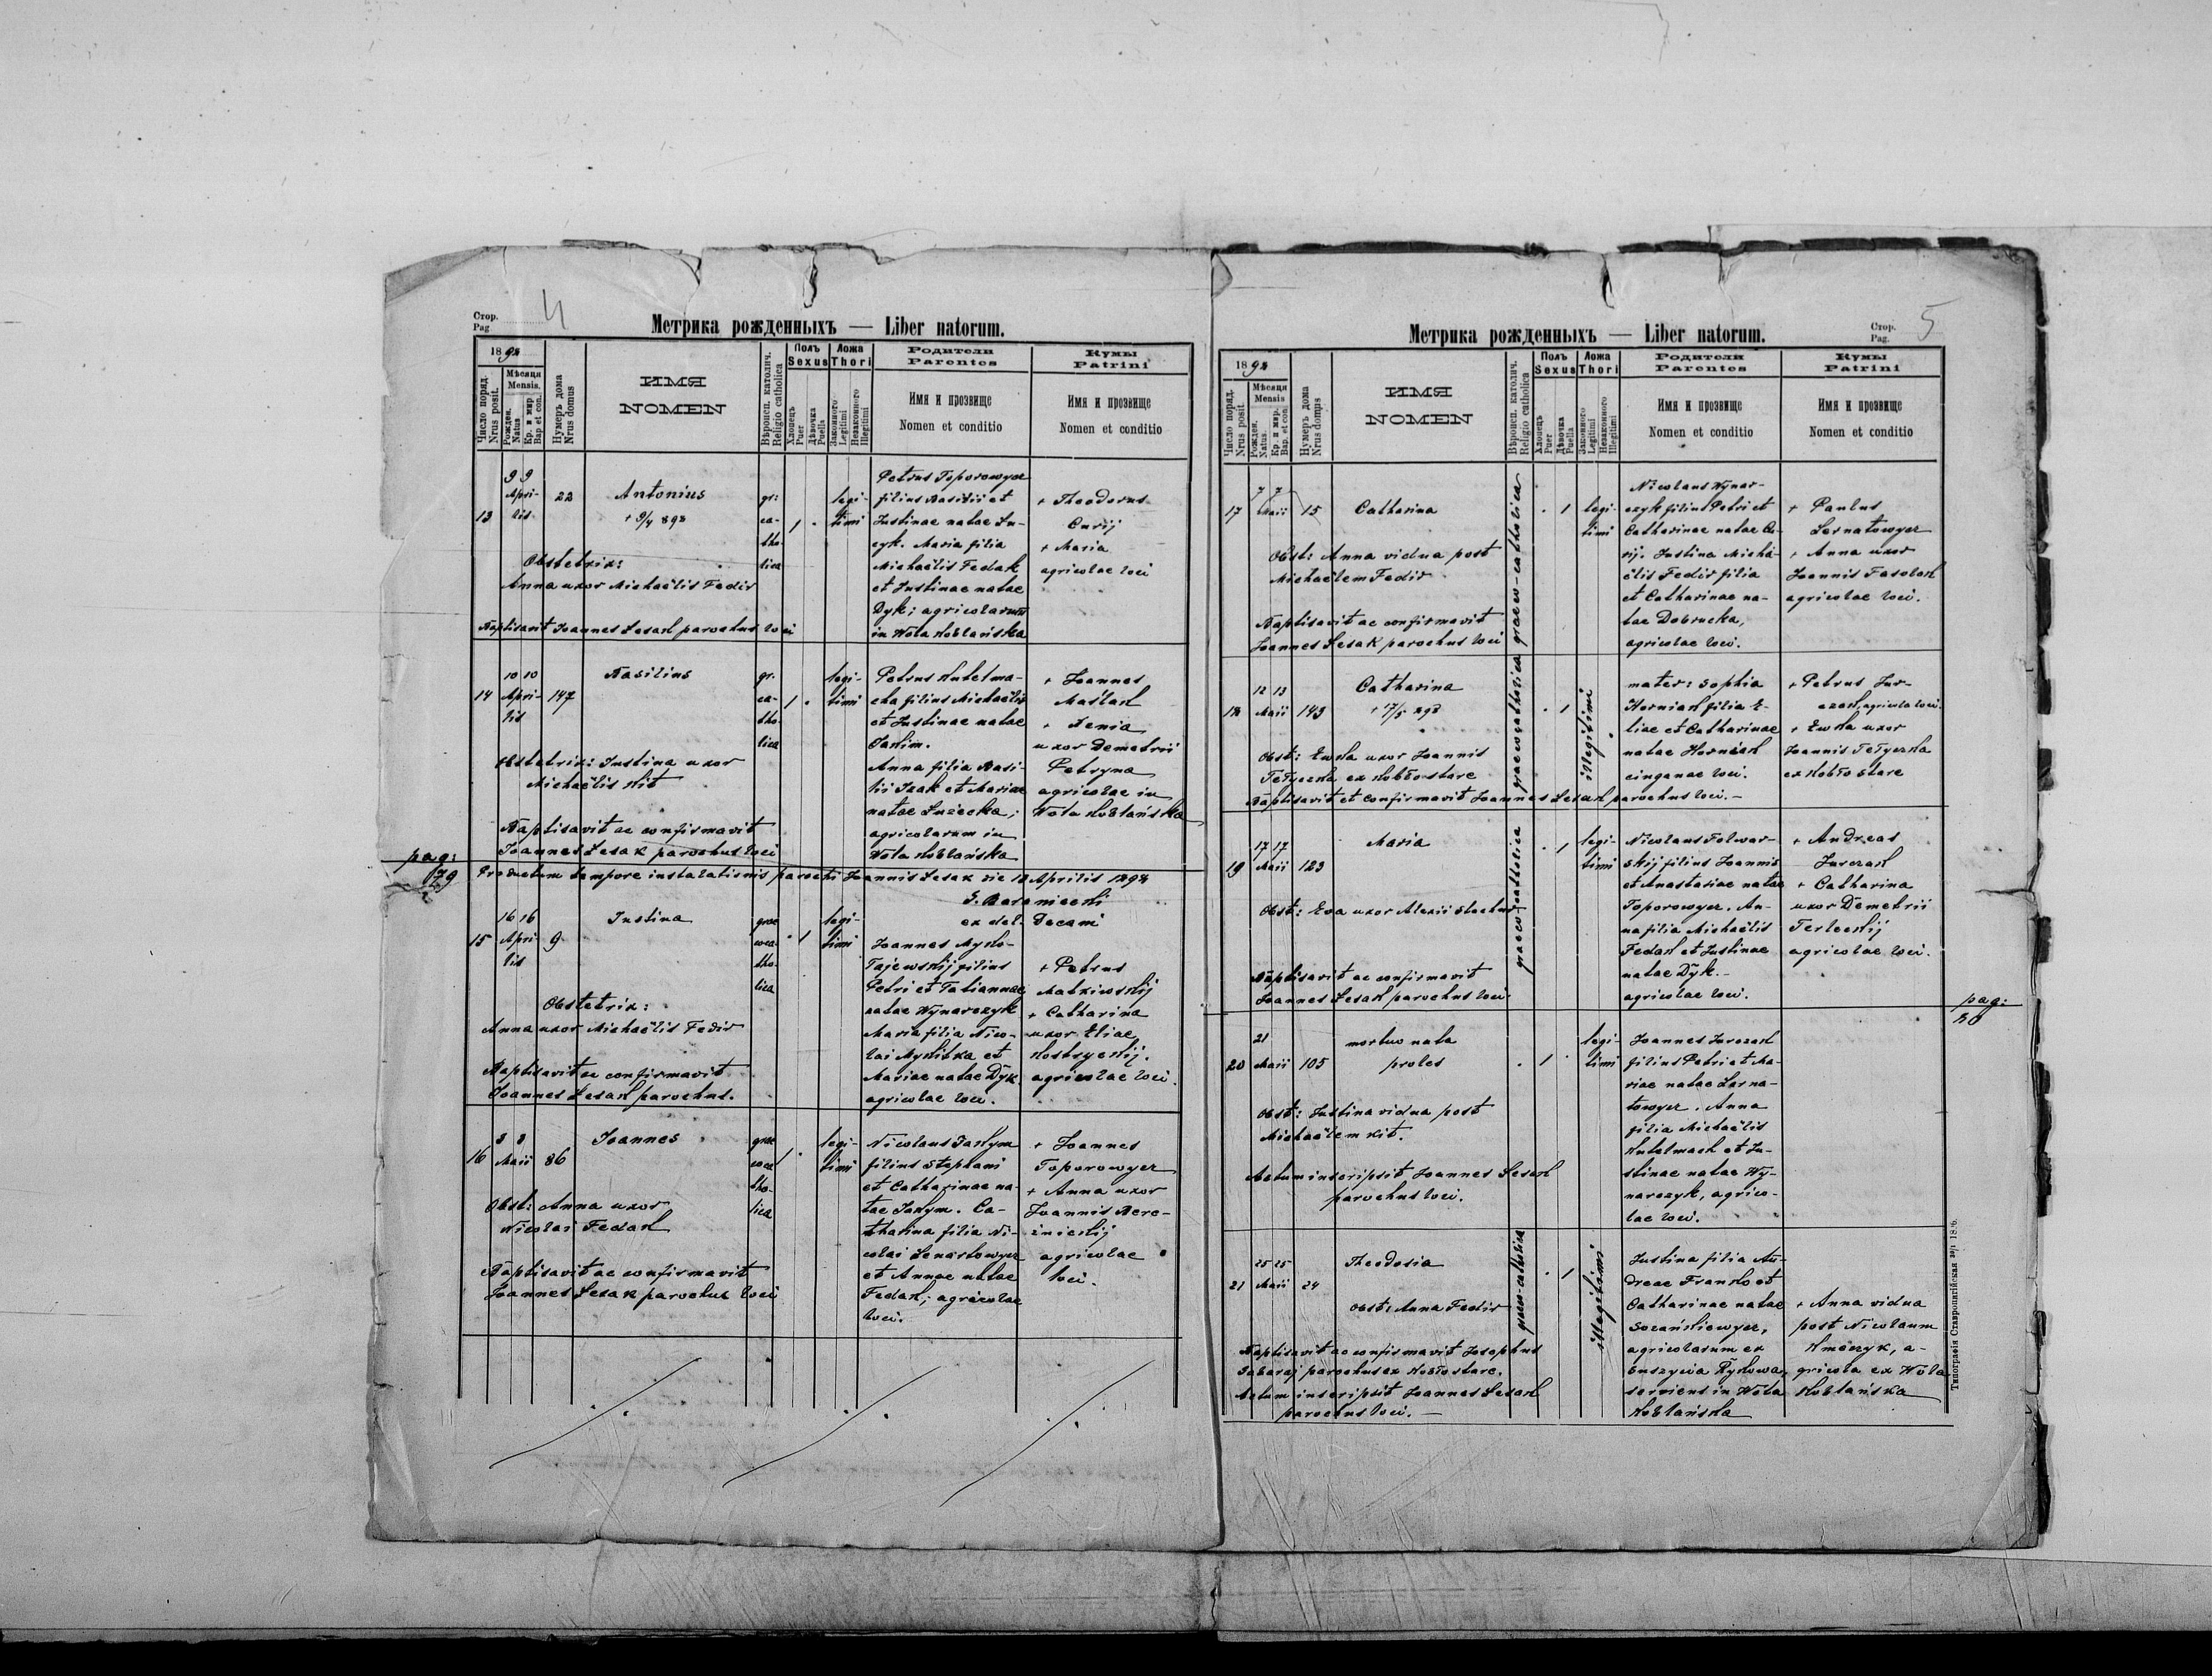 Стор.
Pag. 4
Метрика рожденныхъ — Liber natorum.
1898
Число поряд.
Nrus posit.
Мѣсяця
Mensis.
Рожден.
Natus
Кр. и мир
Bap et con.
Нумеръ дома
Nrus domus
ИМЯ
NOMEN
Вѣроисп. католич.
Religio catholica
Полъ
Sexus
Хлопецъ
Puer
Дѣвочка
Puella
Ложа
Thori
Законного
Legitimi
Незаконного
Illegitimi
Родители
Parentes
Имя и прозвище
Nomen et conditio
Кумы
Patrini
Имя и прозвище
Nomen et conditio
13
9 9
Apri-
lis
22
Antonius
+ 9/4 898
gr:
ca-
tho-
lica
1 .
legi-
timi
Petrus Toporowycz
filius Basilii et
Justinae natae Lu-
cyk. Maria filia
Michaëlis Fedak
et Justinae natae
Dyk; agricolarum
in Wola Koblańska
+ Theodorus
Curij
+ Maria
agricolae loci
Obstetrix:
Anna uxor Michaëlis Fedir
Baptisavit Joannes Lesak parochus loci
14
10 10
Apri-
lis
147
Basilius
gr.
ca-
tho-
lica
1 .
legi-
timi
Petrus Hulelma-
cha filius Michaëlis
et Justinae natae
Jakim.
Anna filia Basi-
lii Izak et Mariae
natae Lużecka;
agricolarum in
Wola Koblańska
+ Joannes
Maślak
+ Xenia
uxor Demetrii
Petryna
agricolae in
Wola Koblańska
Obstetrix: Justina uxor
Michaëlis Kit
Baptisavit ac confirmavit
Joannes Lesak parochus loci
pag:
179
Productum tempore instalationis parochi Joannis Lesak die 12 Aprilis 1898
ex del. Decani
15
16 16
Apri-
lis
9
Justina
grae
coca-
tho-
lica
. 1
legi-
timi
Joannes Mysko-
Tajewskij filius
Petri et Tatiannae
natae Wynarczyk
Maria filia Nico-
lai Mykitka et
Mariae natae Dyk
agricolae loci.
+ Petrus
Matkiwskij
+ Catharina
uxor Eliae
Kostryckij.
agricolae loci.
Obstetrix:
Anna uxor Michaëlis Fedir
Baptisavit ac confirmavit
Joannes Lesak parochus.
16
8 8
Maii
86
Joannes
grae
coca
tho-
lica
1 .
legi-
timi
Nicolaus Jakym
filius Stephani
et Catharinae na-
tae Jakym. Ca-
tharina filia Ni-
colai Lenartowycz
et Annae natae
Fedak; agricolae
loci.
+ Joannes
Toporowycz
+ Anna uxor
Joannis Bere-
znickij
agricolae
loci.
Obst: Anna uxor
Nicolai Fedak
Baptisavit ac confirmavit
Joannes Lesak parochus loci
Стор.
Pag. 5
Метрика рожденныхъ — Liber natorum.
1898
Число поряд.
Nrus posit.
Мѣсяця
Mensis
Рожден.
Natus
Кр. и мир.
Bap. et con.
Нумеръ дома
Nrus domus
ИМЯ
NOMEN
Вѣроисп. католич.
Religio catholica
Полъ
Sexus
Хлопецъ
Puer
Дѣвочка
Puella
Ложа
Thori
Законного
Legitimi
Незаконного
Illegitimi
Родители
Parentes
Имя и прозвище
Nomen et conditio
Кумы
Patrini
Имя и прозвище
Nomen et conditio
17
7 7
Maii
15
Catharina
graeco-catholica
. 1
legi-
timi
Nicolaus Wynar-
czyk filius Petri et
Catharinae natae Cu-
rij. Justina Micha-
ëlis Fedir filia
et Catharinae na-
tae Dobrucka,
agricolae loci.
+ Paulus
Lernatowycz
+ Anna uxor
Joannis Fasolak
agricolae loci.
Obst: Anna vidua post
Michaëlem Fedir
Baptisavit ac confirmavit
Joannes Lesak parochus loci
18
12 13
Maii
143
Catharina
+ 17/5 898
graeco catholica
. 1
illegitimi
mater: Sophia
Horniak filia E-
liae et Catharinae
natae Horniak
cinganae loci.
+ Petrus Jur-
czak, agricola loci.
+ Ewka uxor
Joannis Tełyczka
ex Kobło stare
Obst: Ewka uxor Joannis
Tełyczka ex Kobło stare
Baptisavit et confirmavit Joannes Lesak parochus loci. —
19
17 17
Maii
123
Maria
graeco-catholica
. 1
legi-
timi
Nicolaus Folwar-
skij filius Joannis
et Anastasiae natae
Toporowycz. An-
na filia Michaëlis
Fedak et Justinae
natae Dyk. —
agricolae loci.
+ Andreas
Jurczak
+ Catharina
uxor Demetrii
Terleckij
agricolae loci.
Obst: Eva uxor Alexii Stachur
Baptisavit ac confirmavit
Joannes Lesak parochus loci.
pag:
180
20
21
Maii
105
mortuo nata
proles
. 1
legi-
timi
Joannes Jurczak
filius Petri et Ma-
riae natae Larna-
towycz. Anna
filia Michaëlis
Hulelmach et Ju-
stinae natae Wy-
narczyk, agrico-
lae loci.
Obst: Justina vidua post
Michaëlem Kit.
Actum inscripsit Joannes Lesak
parochus loci.
21
25 25
Maii
24
Theodosia
graeco-catholica
. 1
illegitimi
Justina filia An-
dreae Franko et
Catharinae natae
Sozańskiewycz,
agricolarum ex
Suszyca Rykowa,
serviens in Wola
Koblańska
+ Anna vidua
post Nicolaum
Kmeczyk, a-
gricola ex Wola
Koblańska
Obst: Anna Fedir
Baptisavit ac confirmavit Josephus
parochus ex Kobło stare.
Actum inscripsit Joannes Lesak
parochus loci. —
Типографія Ставропигійская